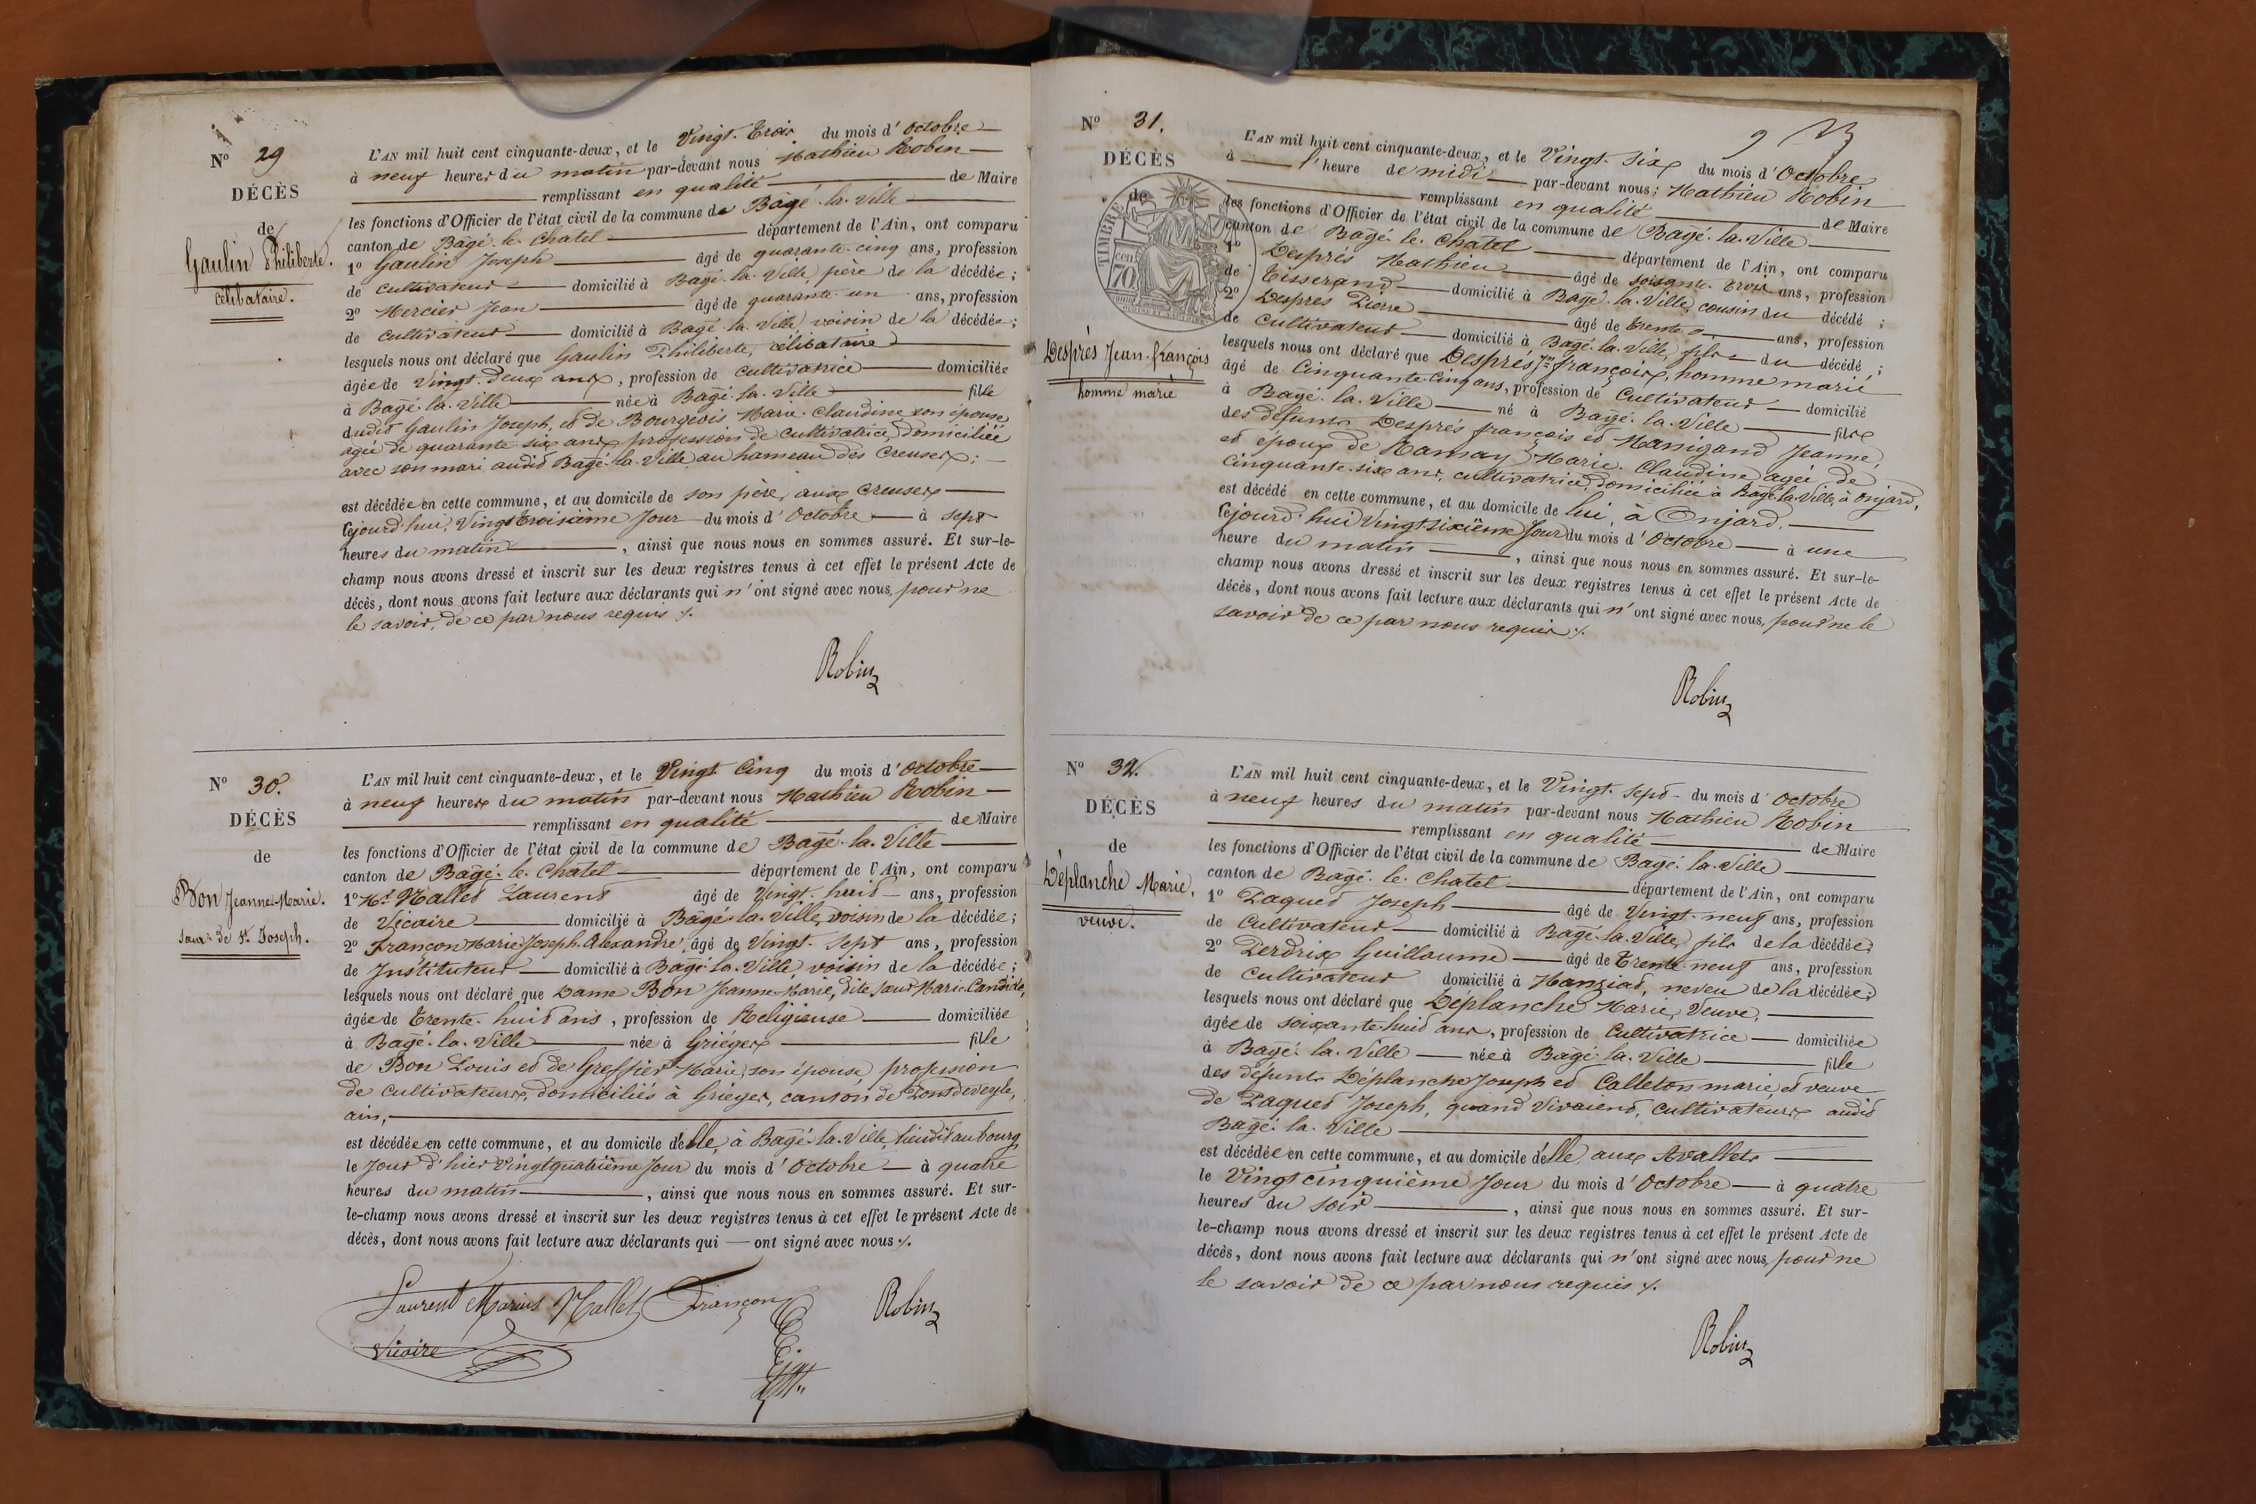 N° 29
DÉCÈS
de
Gaulin Philiberte.
célibataire.
L'AN mil huit cent cinquante-deux, et le Vingt-trois du mois d'Octobre
à neuf heures du matin par-devant nous Mathieu Robin
remplissant en qualité de Maire
les fonctions d'Officier de l'état civil de la commune de Bagé-la-Ville
canton de Bagé-le-Chatel département de l'Ain, ont comparu
1° Gaulin Joseph âgé de quarante-cinq ans, profession
de cultivateur domicilié à Bagé-la-Ville, père de la décédée ;
2° Mercier Jean âgé de quarante-un ans, profession
de cultivateur domicilié à Bagé-la-Ville, voisin de la décédée ;
lesquels nous ont déclaré que Gaulin Philiberte, célibataire
âgée de Vingt-deux ans, profession de cultivatrice domiciliée
à Bagé-la-Ville née à Bagé-la-Ville fille
dudit Gaulin Joseph, et de Bourgeois Marie-Claudine son épouse,
agée de quarante six ans, profession de cultivatrice, domiciliée
avec son mari audit Bagé-la-Ville au hameau des Creuses ;
est décédée en cette commune, et au domicile de son père, aux Creuses
cejourd'hui, Vingt troisième Jour du mois d'Octobre à sept
heures du matin, ainsi que nous nous en sommes assuré. Et sur-le-
champ nous avons dressé et inscrit sur les deux registres tenus à cet effet le présent Acte de
décès, dont nous avons fait lecture aux déclarants qui n'ont signé avec nous, pour ne
le savoir, de ce par nous requis /.
Robin
N° 30.
DÉCÈS
de
Bon Jeanne-Marie.
sœur de St Joseph.
L'AN mil huit cent cinquante-deux, et le Vingt-Cinq du mois d'Octobre
à neuf heures du matin par-devant nous Mathieu Robin
remplissant en qualité de Maire
les fonctions d'Officier de l'état civil de la commune de Bagé-la-Ville
canton de Bagé-le-Chatel département de l'Ain, ont comparu
1° Mr Mallet Laurent âgé de Vingt-huit ans, profession
de Vicaire domicilié à Bagé-la-Ville, voisin de la décédée ;
2° Françon Marie Joseph Alexandre, âgé de Vingt-sept ans, profession
de Instituteur domicilié à Bagé-la-Ville, voisin de la décédée ;
lesquels nous ont déclaré que Dame Bon Jeanne-Marie, dite sœur Marie Candide,
âgée de Trente-huit ans, profession de Religieuse domiciliée
à Bagé-la-Ville née à Grièges fille
de Bon Louis et de Greffier Marie, son épouse, profession
de cultivateurs, domiciliés à Grièges, canton de Pontdeveyle,
ain,
est décédée en cette commune, et au domicile d'elle, à Bagé-la-Ville, lieudit au bourg
le Jour d'hier Vingtquatrième Jour du mois d'Octobre à quatre
heures du matin, ainsi que nous nous en sommes assuré. Et sur-
le-champ nous avons dressé et inscrit sur les deux registres tenus à cet effet le présent Acte de
décès, dont nous avons fait lecture aux déclarants qui ont signé avec nous /.
Laurent Marius Mallet Françon Robin
Vicaire
N° 31.
DÉCÈS
de
TIMBRE
70
Després Jean-François
homme marié
L'AN mil huit cent cinquante-deux, et le Vingt-six du mois d'Octobre
à l'heure de midi par-devant nous ; Mathieu Robin
remplissant en qualité de Maire
les fonctions d'Officier de l'état civil de la commune de Bagé-la-Ville
canton de Bagé-le-Chatel département de l'Ain, ont comparu
1° Després Mathieu âgé de soixante-trois ans, profession
de Tisserand domicilié à Bagé-la-Ville, cousin du décédé ;
2° Després Pierre âgé de trente ans, profession
de Cultivateur domicilié à Bagé-la-Ville, fils du décédé ;
lesquels nous ont déclaré que Després Jn François, homme marié
âgé de Cinquante-Cinq ans, profession de Cultivateur domicilié
à Bagé-la-Ville né à Bagé-la-Ville fils
des défunts Després François et Manigand Jeanne,
et époux de Ramay Marie-Claudine, agée de
cinquante-six ans, cultivatrice, domiciliée à Bagé-la-Ville, à Onjard,
est décédé en cette commune, et au domicile de lui, à Onjard,
cejourd'hui Vingtsixième Jour du mois d'Octobre à une
heure du matin, ainsi que nous nous en sommes assuré. Et sur-le-
champ nous avons dressé et inscrit sur les deux registres tenus à cet effet le présent Acte de
décès, dont nous avons fait lecture aux déclarants qui n'ont signé avec nous, pour ne le
savoir de ce par nous requis /.
Robin
N° 32.
DÉCÈS
de
Déplanche Marie,
veuve.
L'AN mil huit cent cinquante-deux, et le Vingt-sept du mois d'Octobre
à neuf heures du matin par-devant nous Mathieu Robin
remplissant en qualité de Maire
les fonctions d'Officier de l'état civil de la commune de Bagé-la-Ville
canton de Bagé-le-Chatel département de l'Ain, ont comparu
1° Paquet Joseph âgé de Vingt-neuf ans, profession
de Cultivateur domicilié à Bagé-la-Ville, fils de la décédée ;
2° Perdrix Guillaume âgé de Trente-neuf ans, profession
de cultivateur domicilié à Manziat, neveu de la décédée ;
lesquels nous ont déclaré que Déplanche Marie, Veuve,
âgée de soixante-huit ans, profession de Cultivatrice domiciliée
à Bagé-la-Ville née à Bagé-la-Ville fille
des défunts Déplanche Joseph et Calleton marie, et veuve
de Paquet Joseph, quand Vivaient, cultivateurs audit
Bagé-la-Ville
est décédée en cette commune, et au domicile d'elle, aux Avallets
le Vingt cinquième Jour du mois d'Octobre à quatre
heures du soir, ainsi que nous nous en sommes assuré. Et sur-
le-champ nous avons dressé et inscrit sur les deux registres tenus à cet effet le présent Acte de
décès, dont nous avons fait lecture aux déclarants qui n'ont signé avec nous, pour ne
le savoir de ce par nous requis /.
Robin